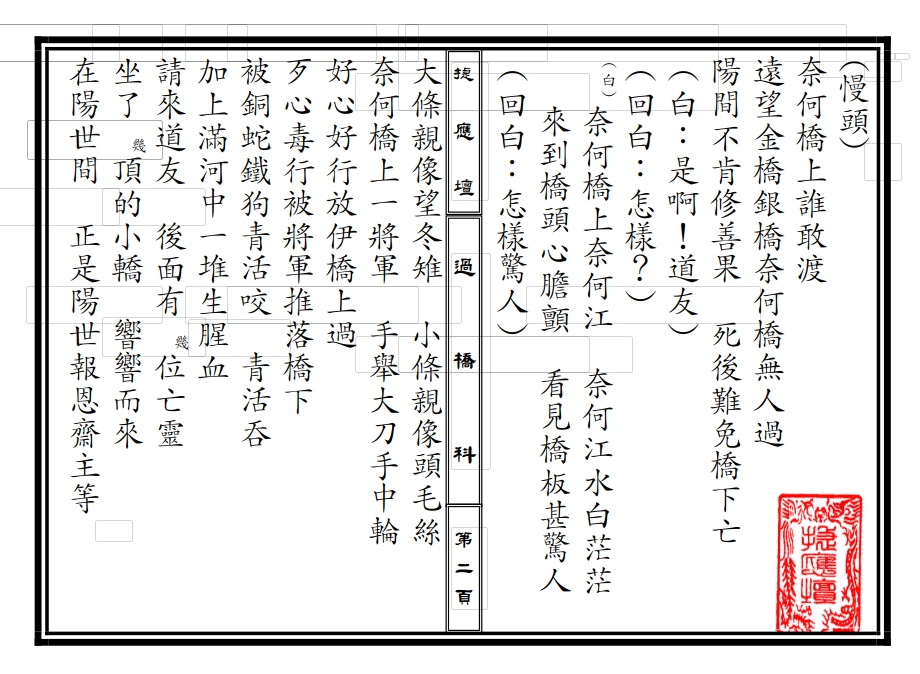 (慢頭)
奈何橋上誰敢渡
遠望金橋銀橋奈何橋無人過
陽間不肯修善果 死後難免橋下亡
(白：是啊！道友)
(回白：怎樣？)
(白) 奈何橋上奈何江 奈何江水白茫茫
來到橋頭心膽顫 看見橋板甚驚人
(回白：怎樣驚人)
捷應壇 過橋科 第二頁
大條親像望冬雉 小條親像頭毛絲
奈何橋上一將軍 手舉大刀手中輪
好心好行放伊橋上過
歹心毒行被將軍推落橋下
被銅蛇鐵狗青活咬 青活吞
加上滿河中一堆生腥血
請來道友 後面有幾位亡靈
坐了幾頂的小轎 響響而來
在陽世間 正是陽世報恩齋主等